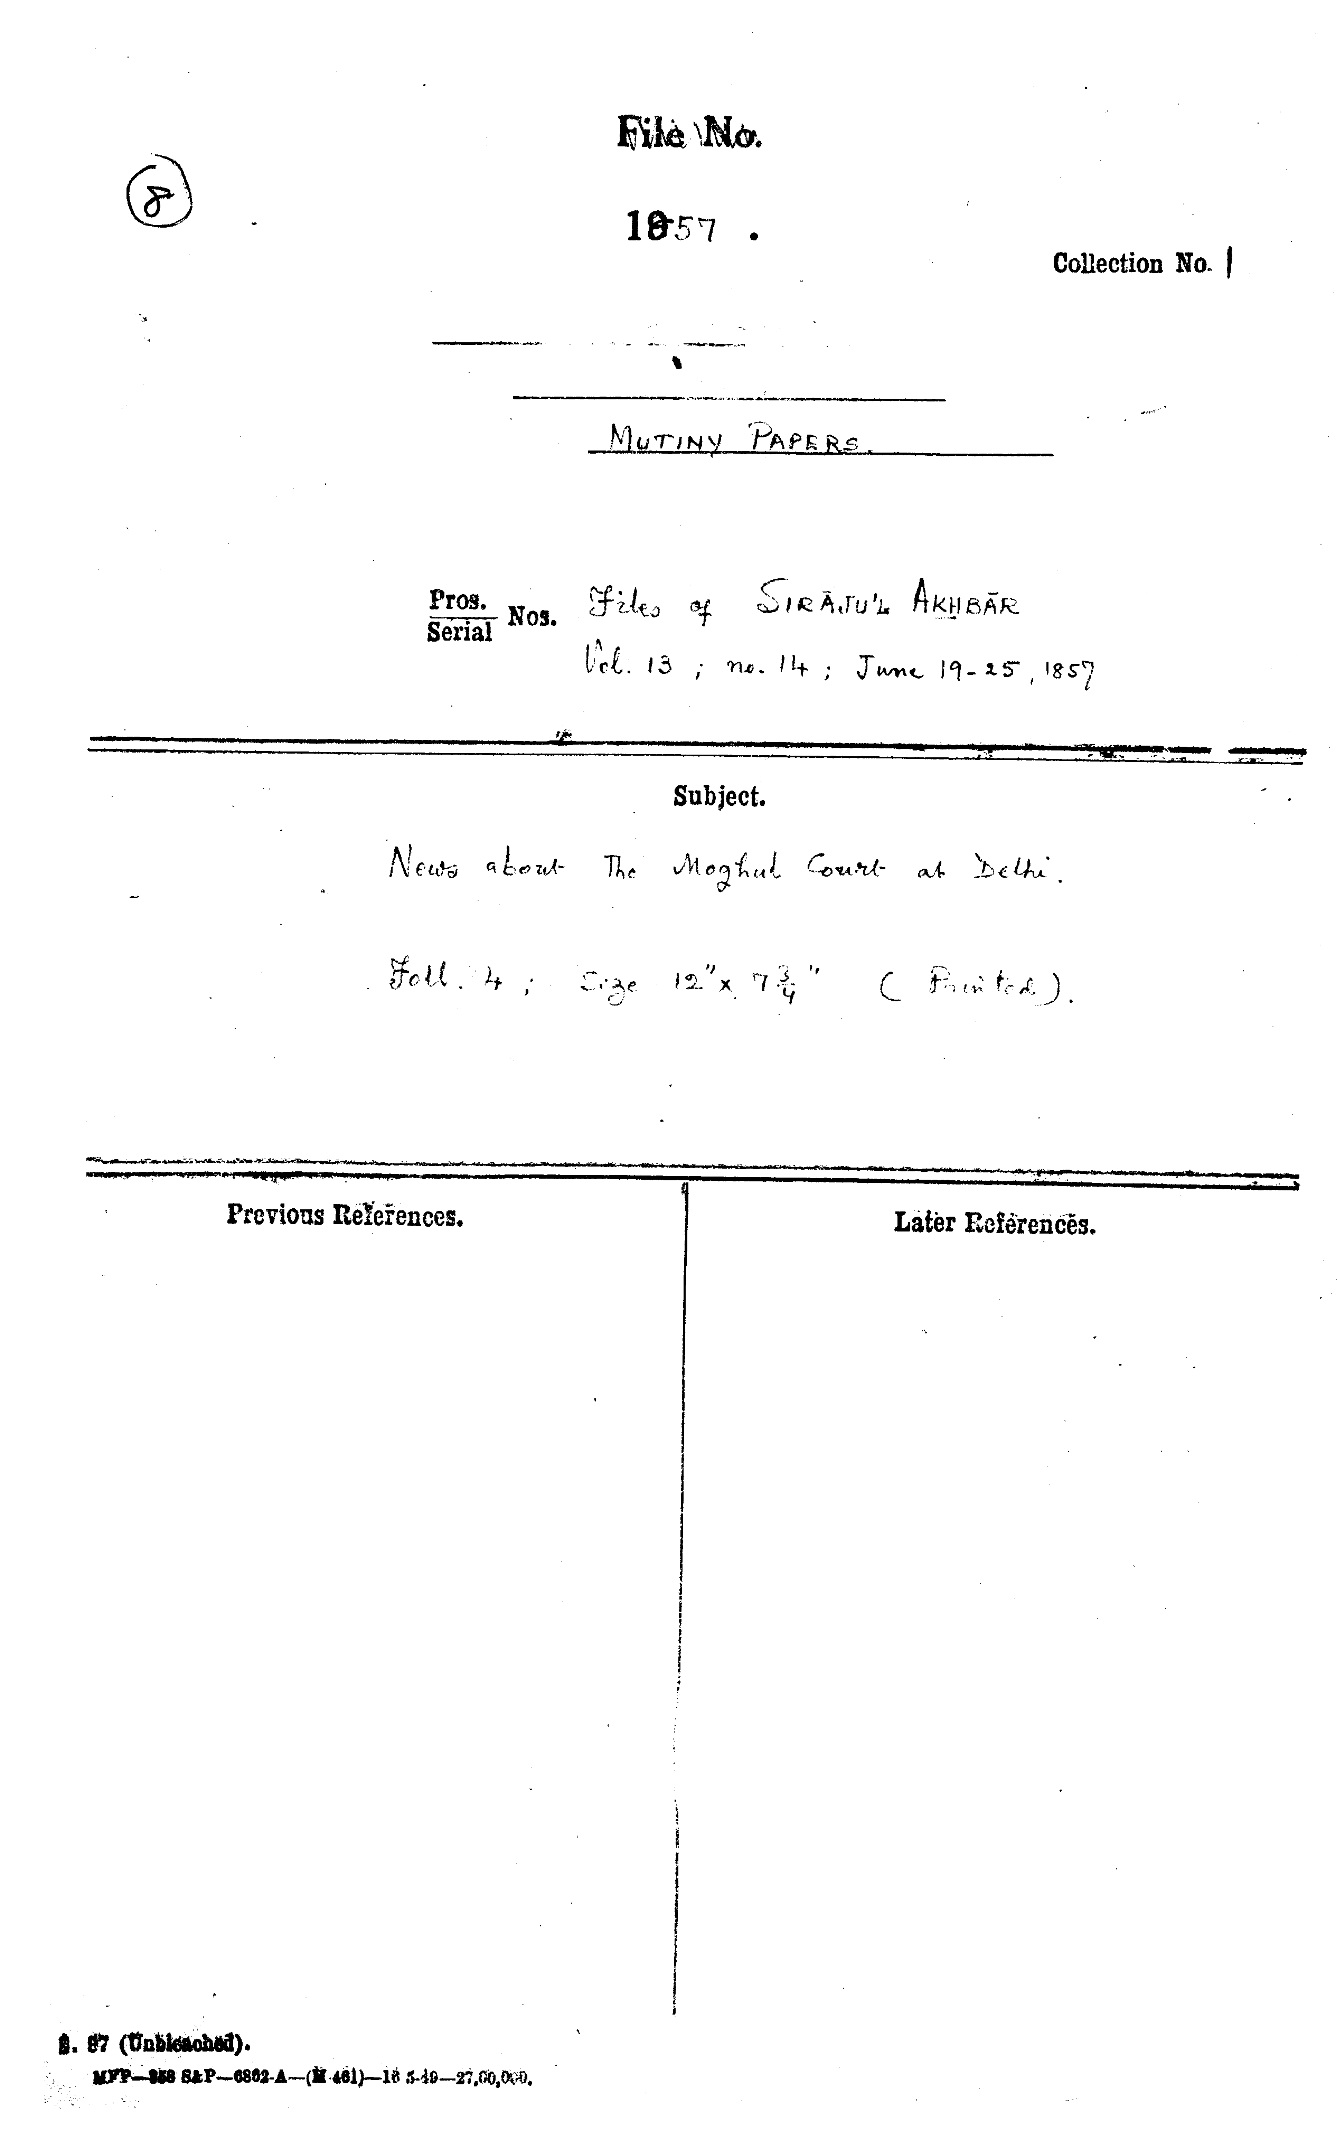 File No.
8
1857 .
Collection No. 1
MUTINY PAPERS.
Pros.
Serial Nos.
Files of SIRĀJU'L AKHBĀR
Vol. 13 ; no. 14 ; June 19-25, 1857
Subject.
News about The Moghul Court at Delhi.
Foll. 4 ; Size 12" x 7 3/4" ( Printed ).
Previous References.
Later References.
S. 87 (Unbleached).
MFP—858 S&P—6862-A—(M 461)—18 5-49—27,00,000.